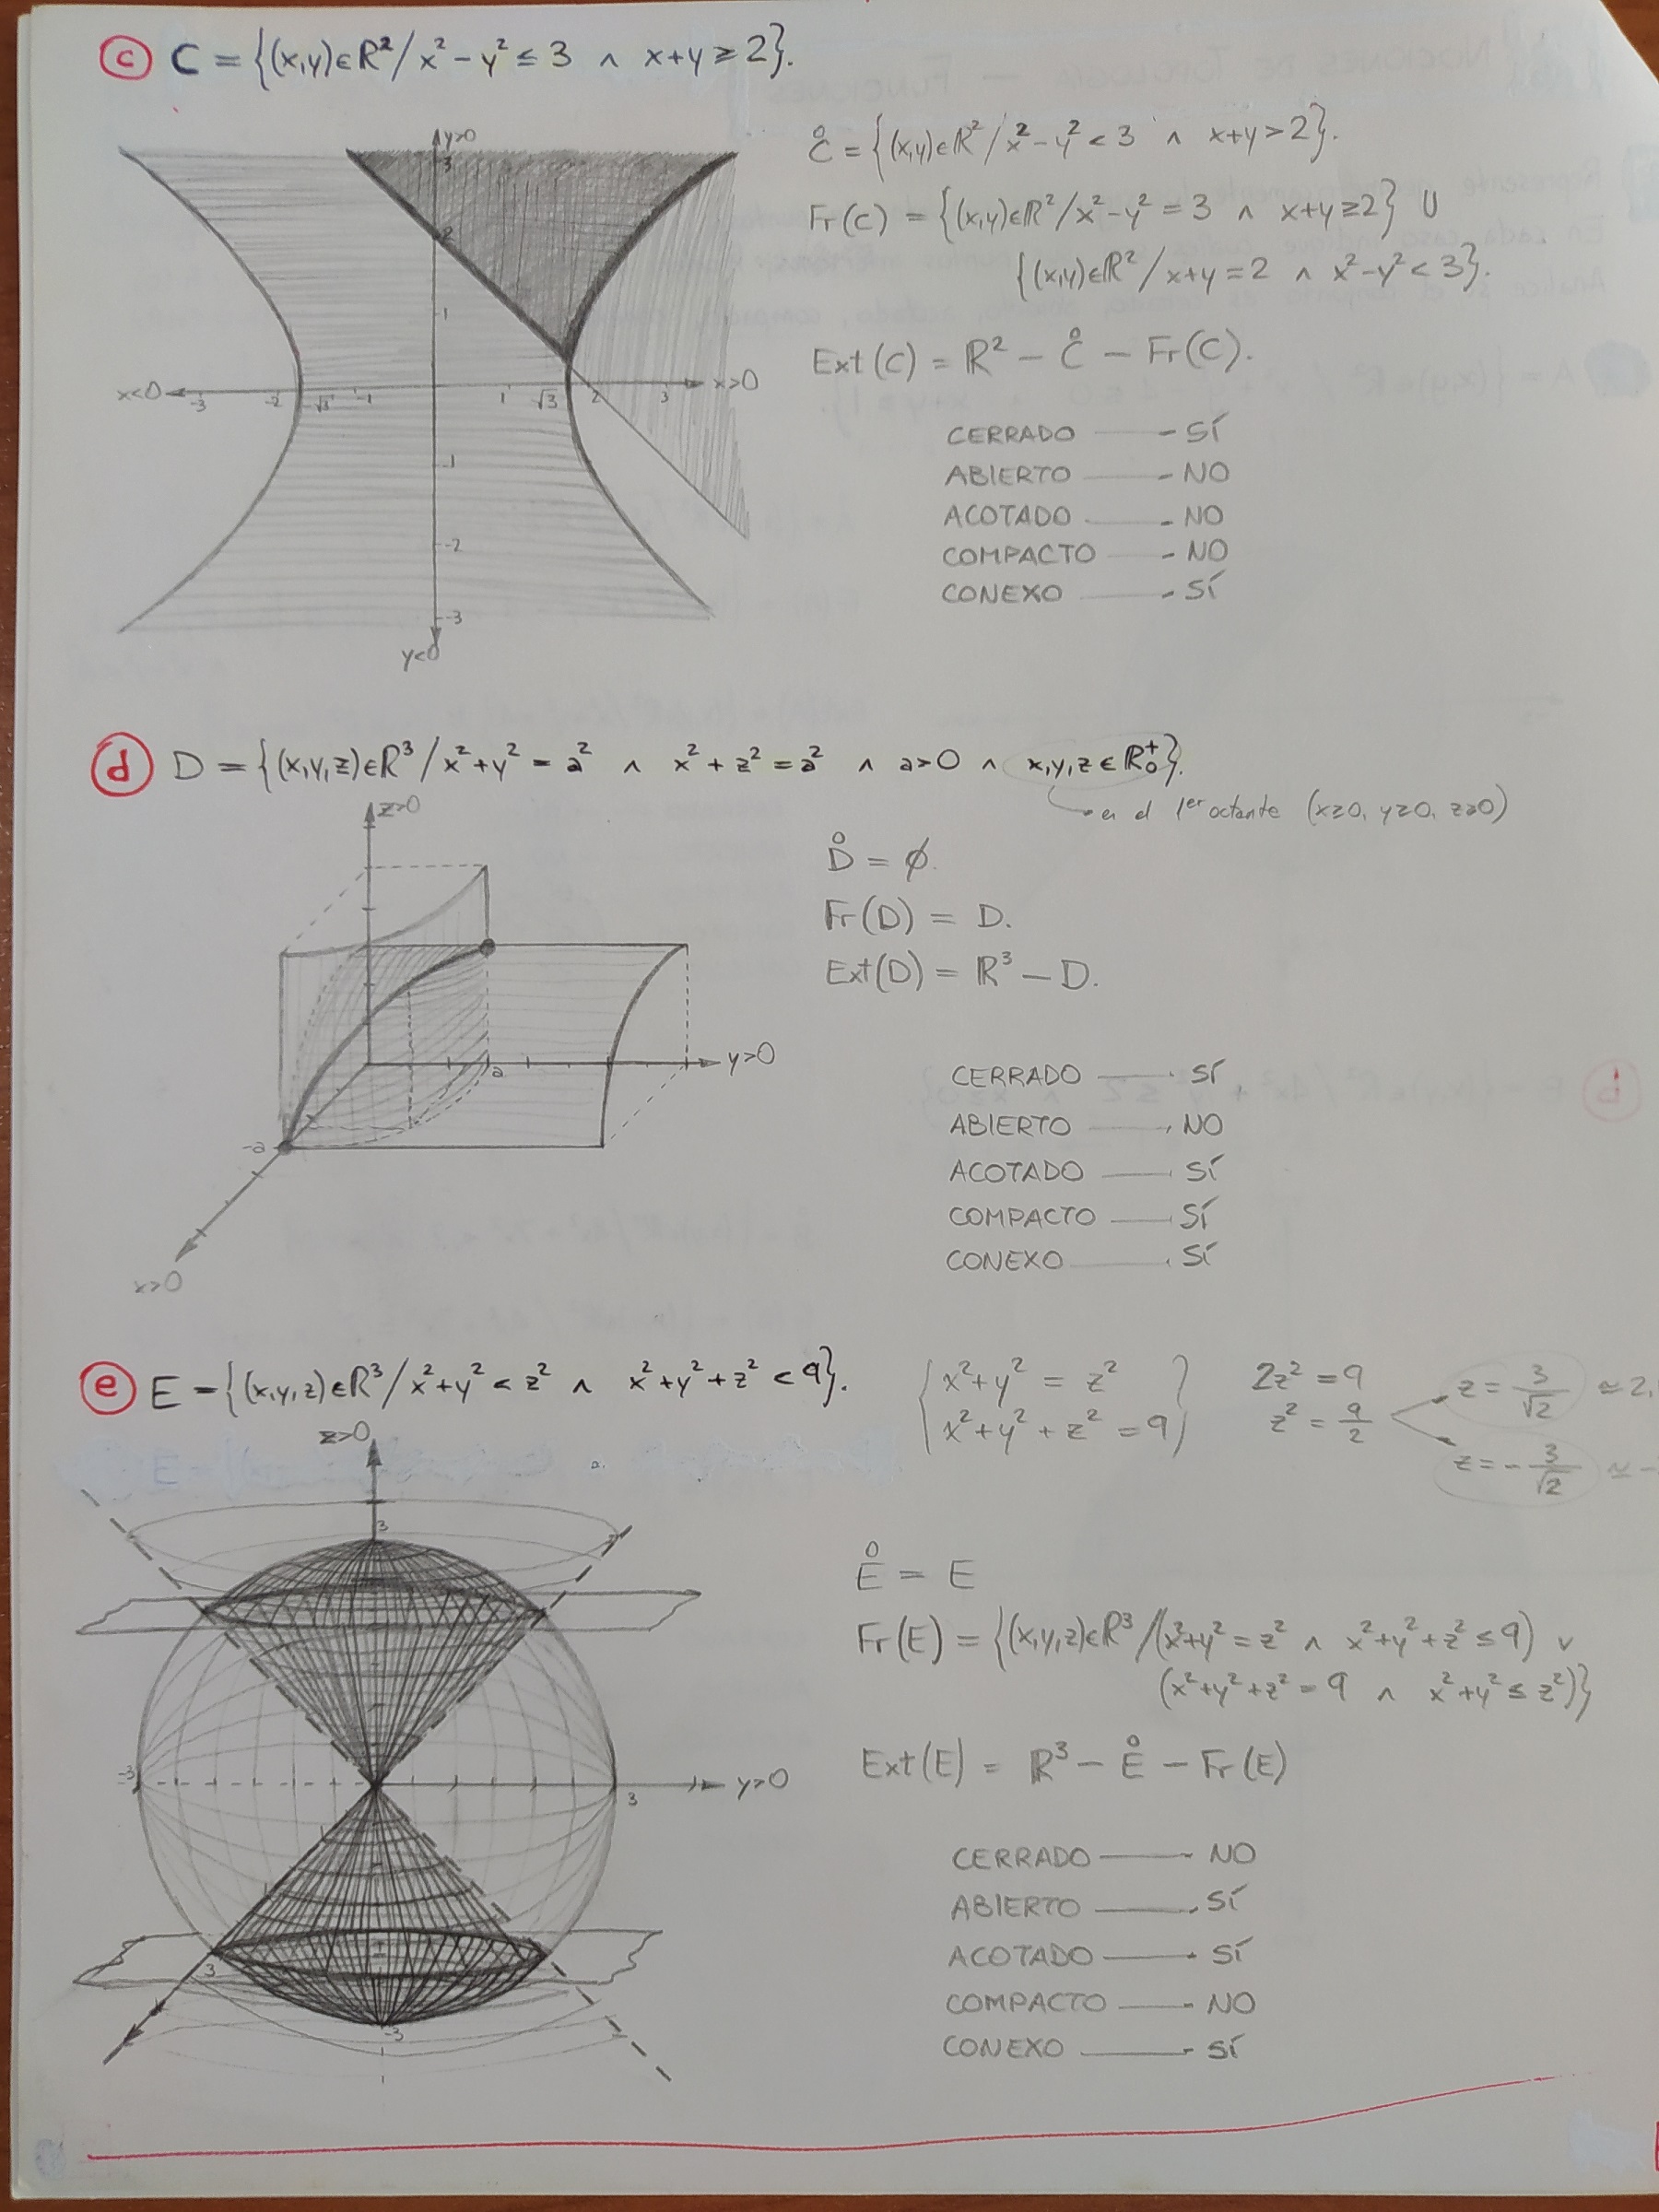 c C = {(x,y)∈R²/ x² - y² ≤ 3 ∧ x+y ≥ 2}.
y>0
3
2
1
x<0 -3 -2 -√3 -1 1 √3 2 3 x>0
-1
-2
-3
y<0
C̊ = {(x,y)∈R²/x²-y² < 3 ∧ x+y > 2}.
Fr(C) = {(x,y)∈R²/x²-y² = 3 ∧ x+y ≥ 2} ∪
{(x,y)∈R²/x+y = 2 ∧ x²-y² < 3}.
Ext(C) = R² - C̊ - Fr(C).
CERRADO — SÍ
ABIERTO — NO
ACOTADO — NO
COMPACTO — NO
CONEXO — SÍ
d D = {(x,y,z)∈R³/x²+y² = a² ∧ x²+z² = a² ∧ a>0 ∧ x,y,z ∈ R₀⁺}.
en el 1er octante (x≥0, y≥0, z≥0)
z>0
a
y>0
-a
x>0
D̊ = ∅.
Fr(D) = D.
Ext(D) = R³ - D.
CERRADO — SÍ
ABIERTO — NO
ACOTADO — SÍ
COMPACTO — SÍ
CONEXO — SÍ
e E = {(x,y,z)∈R³/x²+y² < z² ∧ x²+y²+z² < 9}.
{x²+y² = z²
x²+y²+z² = 9}
2z² = 9
z² = 9/2
z = 3/√2 ≈ 2,
z = -3/√2 ≈ -
z>0
3
-3
y>0
3
3
-3
E̊ = E
Fr(E) = {(x,y,z)∈R³/(x²+y² = z² ∧ x²+y²+z² ≤ 9) ∨
(x²+y²+z² = 9 ∧ x²+y² ≤ z²)}
Ext(E) = R³ - E̊ - Fr(E)
CERRADO — NO
ABIERTO — SÍ
ACOTADO — SÍ
COMPACTO — NO
CONEXO — SÍ